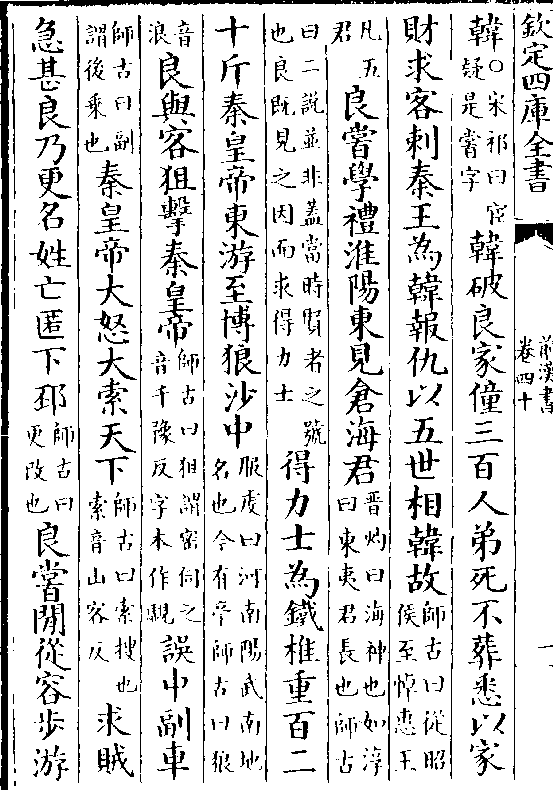 欽定四庫全書　前漢書卷四十
韓〇宋祁曰宦疑是嘗字韓破良家僮三百人弟死不葬悉以家
財求客刺秦王為韓報仇以五世相韓故師古曰從昭侯至悼惠王
凡五君良嘗學禮淮陽東見倉海君晋灼曰海神也如淳曰東夷君長也師古
曰二說並非蓋當時賢者之號也良既見之因而求得力士得力士為鐵椎重百二
十斤秦皇帝東游至博狼沙中服虔曰河南陽武南地名也今有亭師古曰狼
音浪良與客狙擊秦皇帝師古曰狙謂密伺之音千豫反字本作覰誤中副車
師古曰副謂後乗也秦皇帝大怒大索天下師古曰索搜也索音山客反求賊
急甚良乃更名姓亡匿下邳師古曰更改也良嘗閒從容步游